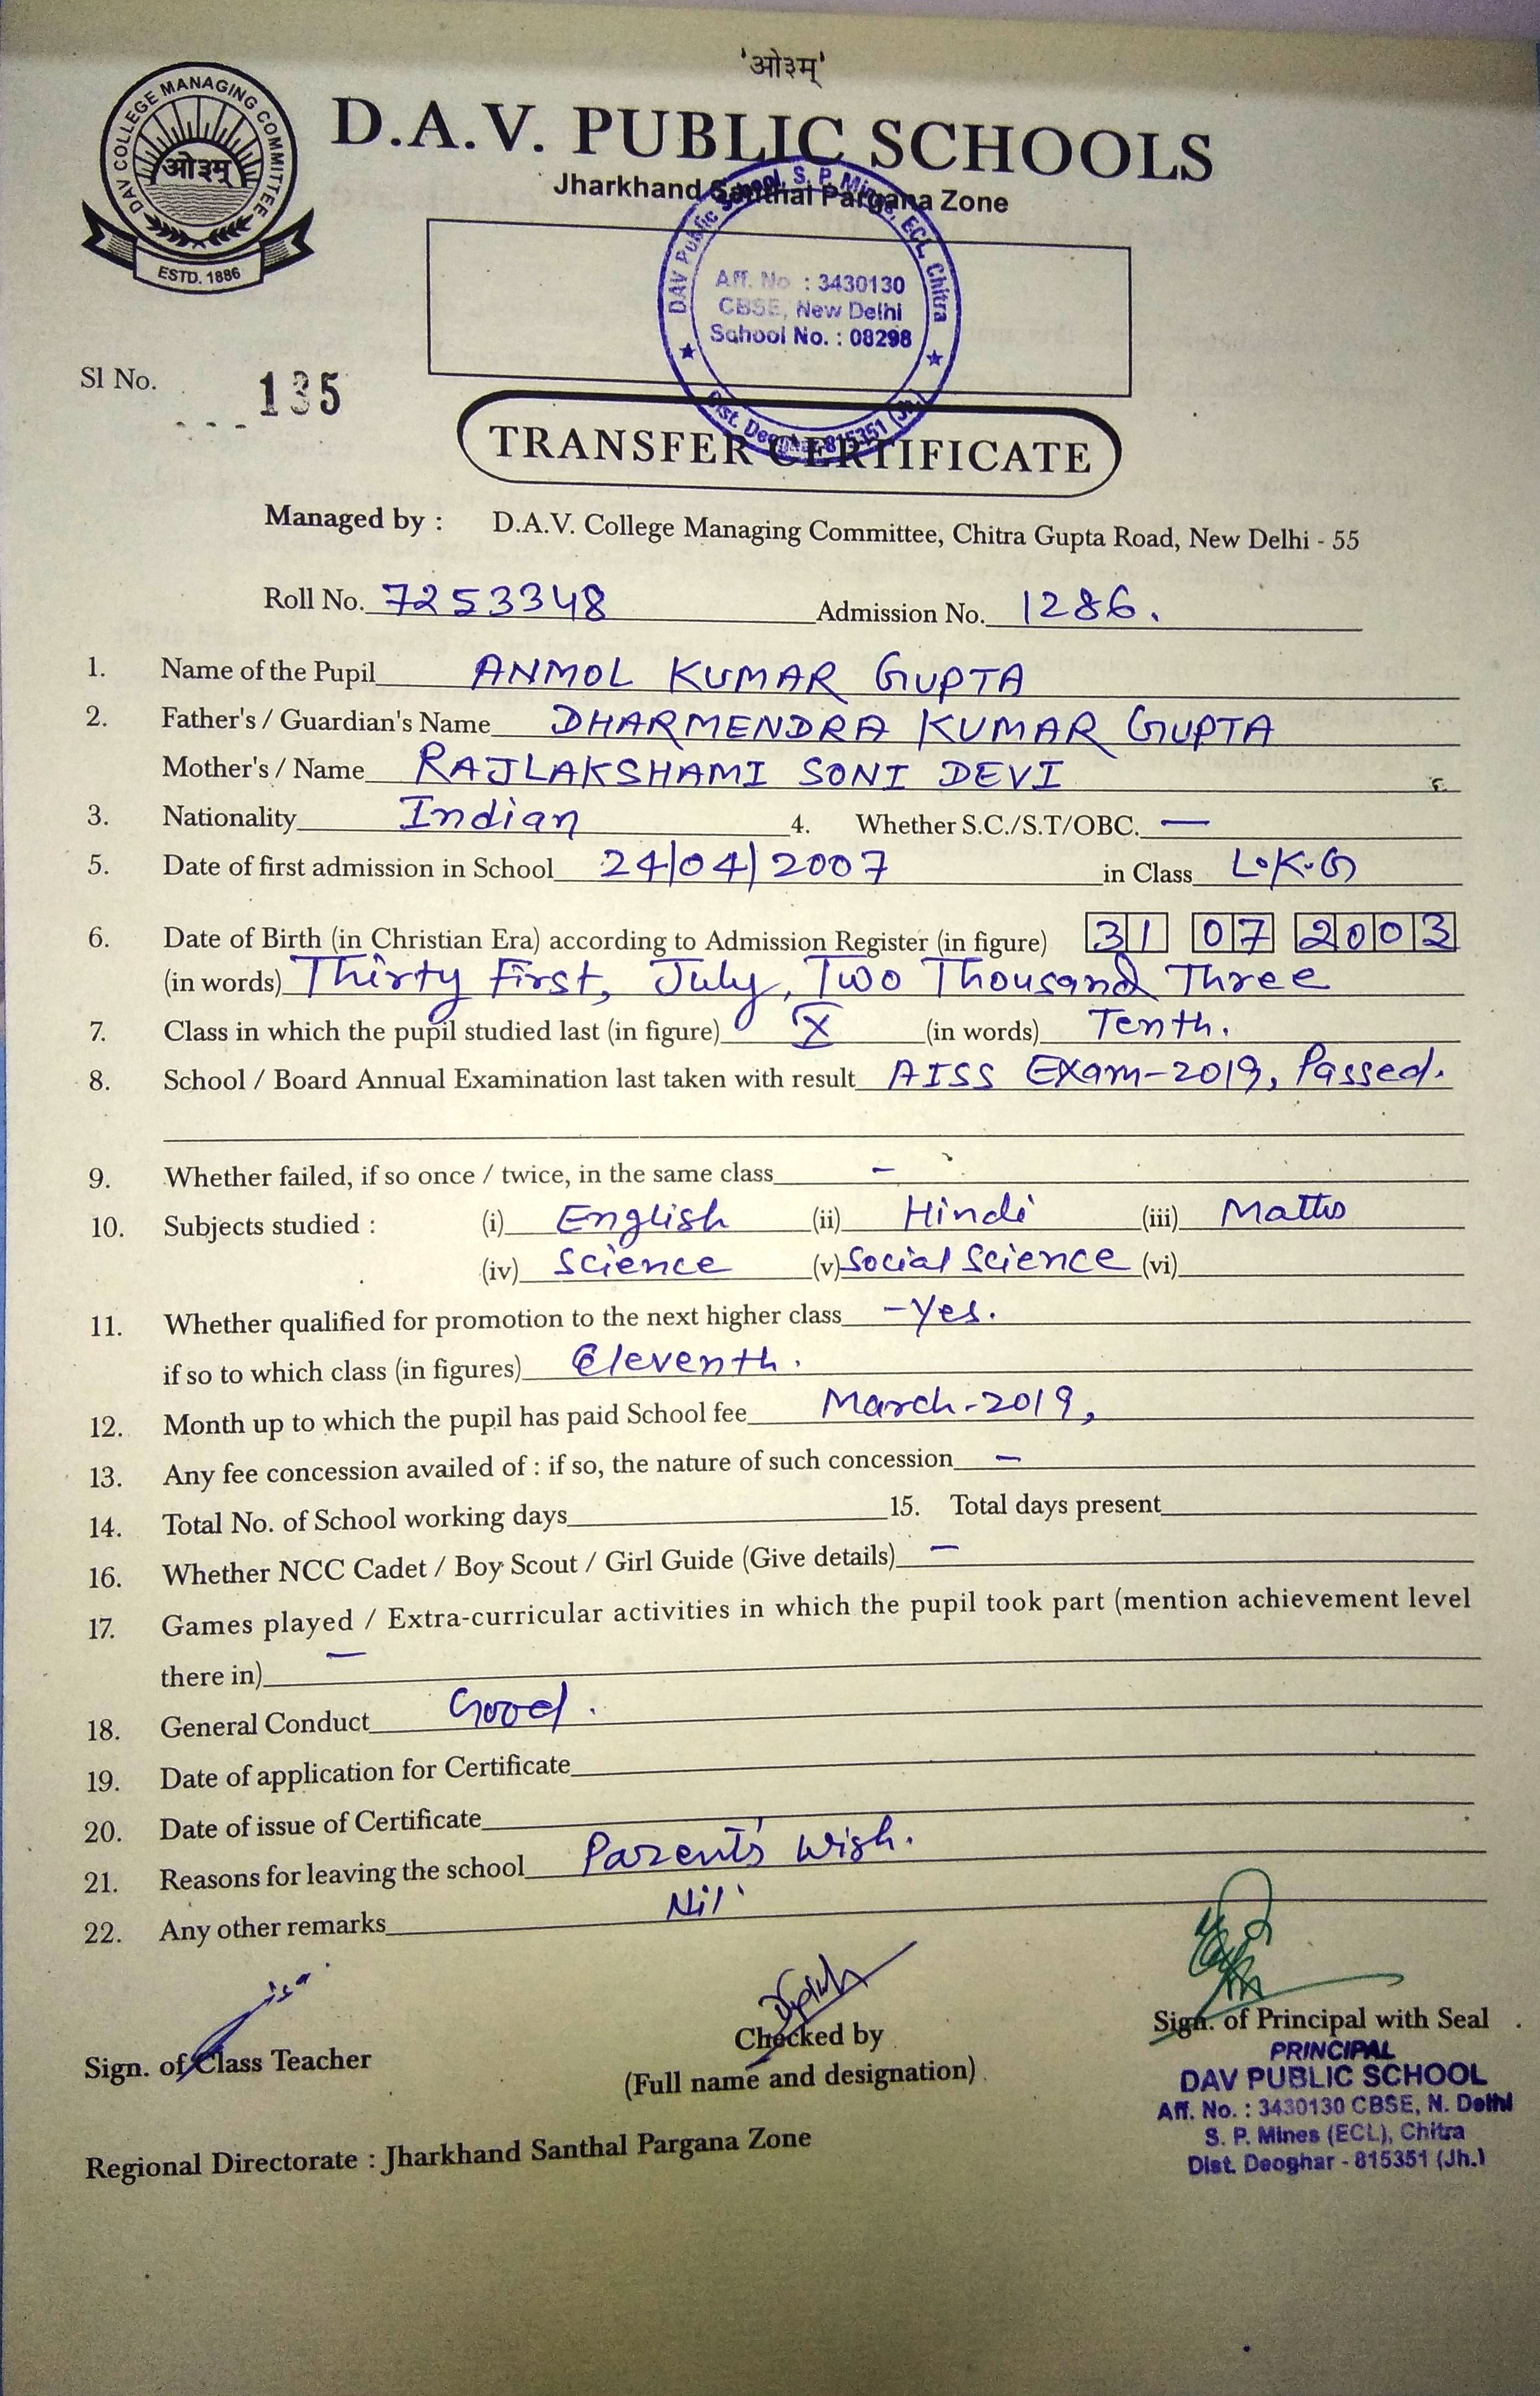 'ओ३म्'
DAV COLLEGE MANAGING COMMITTEE
ओ३म्
ESTD. 1886
D.A.V. PUBLIC SCHOOLS
Jharkhand Santhal Pargana Zone
DAV Public School, S. P. Mines, ECL, Chitra
Aff. No : 3430130
CBSE, New Delhi
School No. : 08298
Dist. Deoghar-815351 (Jh.)
Sl No. 135
TRANSFER CERTIFICATE
Managed by : D.A.V. College Managing Committee, Chitra Gupta Road, New Delhi - 55
Roll No. 7253348 Admission No. 1286.
1. Name of the Pupil ANMOL KUMAR GUPTA
2. Father's / Guardian's Name DHARMENDRA KUMAR GUPTA
Mother's / Name RAJLAKSHAMI SONI DEVI
3. Nationality Indian 4. Whether S.C./S.T/OBC. —
5. Date of first admission in School 24/04/2007 in Class L.K.G
6. Date of Birth (in Christian Era) according to Admission Register (in figure) 31 07 2003
(in words) Thirty First, July, Two Thousand Three
7. Class in which the pupil studied last (in figure) X (in words) Tenth.
8. School / Board Annual Examination last taken with result AISS Exam-2019, Passed.
9. Whether failed, if so once / twice, in the same class –
10. Subjects studied : (i) English (ii) Hindi (iii) Maths
(iv) Science (v) Social Science (vi)
11. Whether qualified for promotion to the next higher class -Yes.
if so to which class (in figures) Eleventh.
12. Month up to which the pupil has paid School fee March-2019,
13. Any fee concession availed of : if so, the nature of such concession –
14. Total No. of School working days 15. Total days present
16. Whether NCC Cadet / Boy Scout / Girl Guide (Give details) –
17. Games played / Extra-curricular activities in which the pupil took part (mention achievement level
there in) —
18. General Conduct Good.
19. Date of application for Certificate
20. Date of issue of Certificate
21. Reasons for leaving the school Parent's Wish.
22. Any other remarks Nil
Sign. of Class Teacher
Checked by
(Full name and designation)
Sign. of Principal with Seal
PRINCIPAL
DAV PUBLIC SCHOOL
Aff. No. : 3430130 CBSE, N. Delhi
S. P. Mines (ECL), Chitra
Dist. Deoghar - 815351 (Jh.)
Regional Directorate : Jharkhand Santhal Pargana Zone